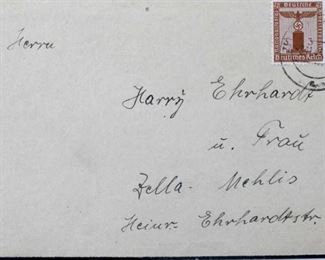 Deutsches Reich
Herrn
Harry Ehrhardt
u. Frau
Zella-Mehlis
Heinr. Ehrhardtstr.